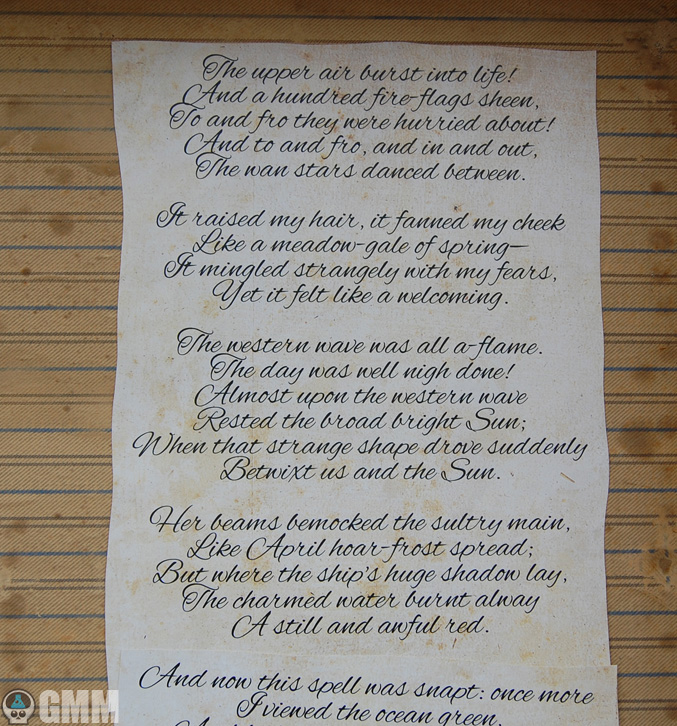 The upper air burst into life!
And a hundred fire-flags sheen,
To and fro they were hurried about!
And to and fro, and in and out,
The wan stars danced between.
It raised my hair, it fanned my cheek
Like a meadow-gale of spring—
It mingled strangely with my fears,
Yet it felt like a welcoming.
The western wave was all a-flame.
The day was well nigh done!
Almost upon the western wave
Rested the broad bright Sun;
When that strange shape drove suddenly
Betwixt us and the Sun.
Her beams bemocked the sultry main,
Like April hoar-frost spread;
But where the ship's huge shadow lay,
The charmèd water burnt alway
A still and awful red.
And now this spell was snapt: once more
I viewed the ocean green,
GMM